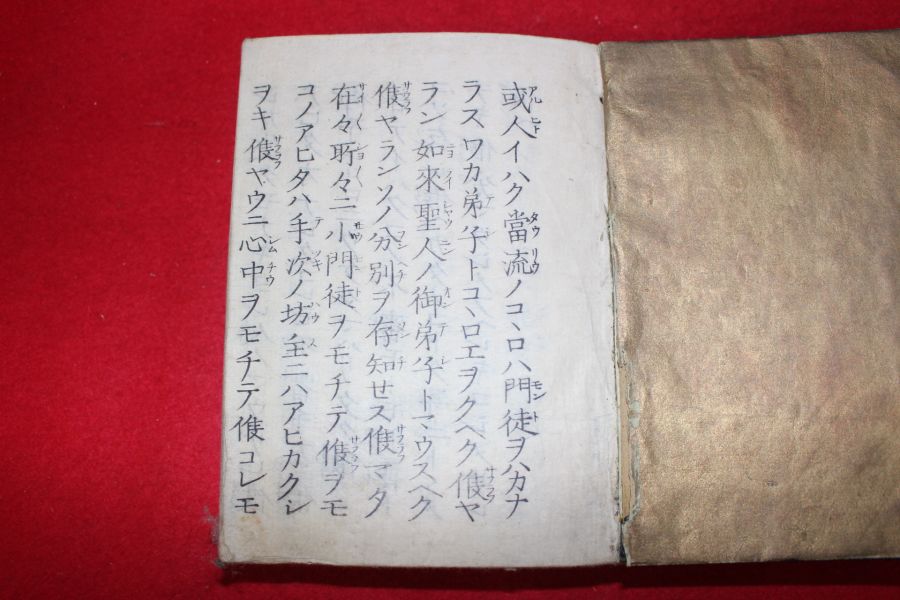 或人イハク當流ノコヽロハ門徒ヲハカナ
ラスワカ弟子トコヽロエヲクヘク候ヤ
ラン如來聖人ノ御弟子トマウスヘク
候ヤランソノ分別ヲ存知せス候マタ
在々所々ニ小門徒ヲモチテ候ヲモ
コノアヒタハ手次ノ坊主ニハアヒカクシ
ヲキ候ヤウニ心中ヲモチテ候コレモ